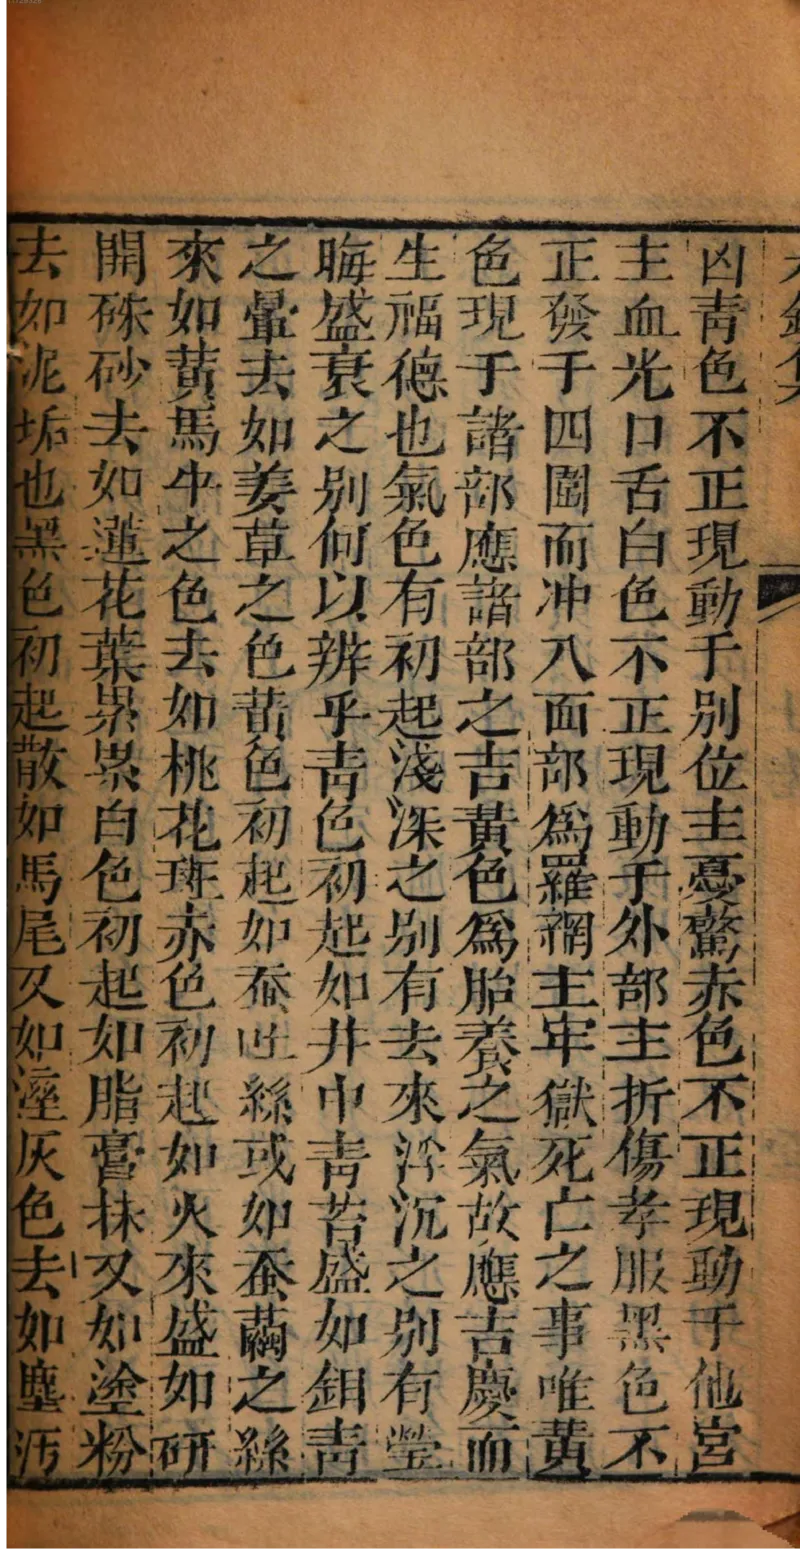 凶青色不正現動于別位主憂驚赤色不正現動于他宮
主血光口舌白色不正現動于外部主折傷孝服黑色不
正發于四圍而冲八面部爲羅網主牢獄死亡之事唯黄
色現于諸部應諸部之吉黃色爲胎養之氣故應吉慶而
生福德也氣色有初起淺深之别有去來浮沉之别有瑩
晦盛衰之别何以辨乎青色初起如井中青苔盛如鈤青
之暈去如姜草之色黄色初起如蚕吐絲或如蚕繭之絲
來如黄馬牛之色去如桃花班赤色初起如火來盛如研
開硃砂去如蓮花葉累累白色初起如脂膏抹又如塗粉
去如泥垢也黑色初起散如馬尾又如溼灰色去如塵沔